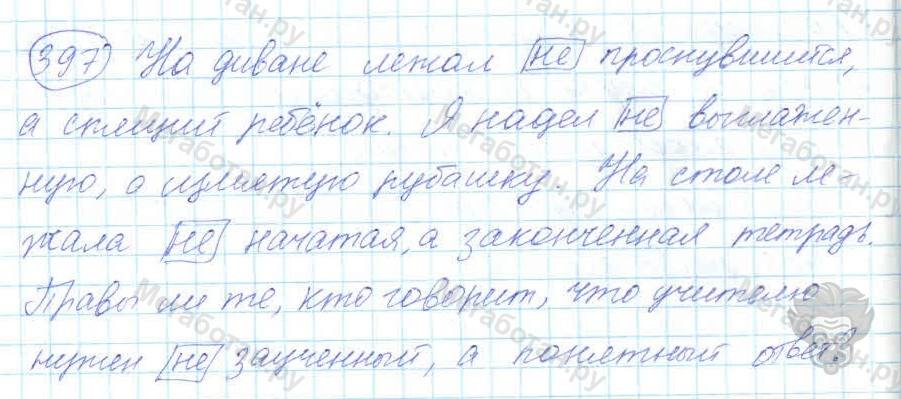 397 На диване лежал не проснувшийся,
а спящий ребёнок. Я надел не выглажен-
ную, а измятую рубашку. На столе ле-
жала не начатая, а законченная тетрадь.
Правы ли те, кто говорит, что учителю
нужен не заученный, а понятный ответ?
Мегаботан.ру